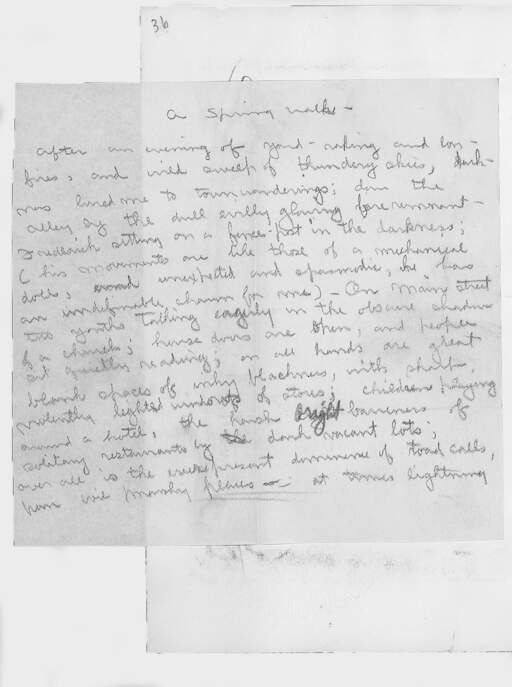 36
A Spring walk -
After an evening of yard-raking and bon-
fires, and wild sweep of thundery skies, dark-
ness lured me to town wanderings; down the
alley by the dull evilly glowing fire remnant -
Frederick sitting on a fence-post in the darkness;
( his movements are like those of a mechanical
doll's, unexpected and spasmodic, he has
an indefinable charm for me) - On Main Street
two youths talking eagerly in the obscure shadow
of a church; house doors are open, and people
sit quietly reading; on all hands are great
blank spaces of inky blackness, with sharp,
violently lighted windows of stores; children playing
around a hotel, the harsh bright barreness of
solitary restaurants by dark vacant lots;
over all is the ever present dominence of toad calls,
from marshy places - at times lightning